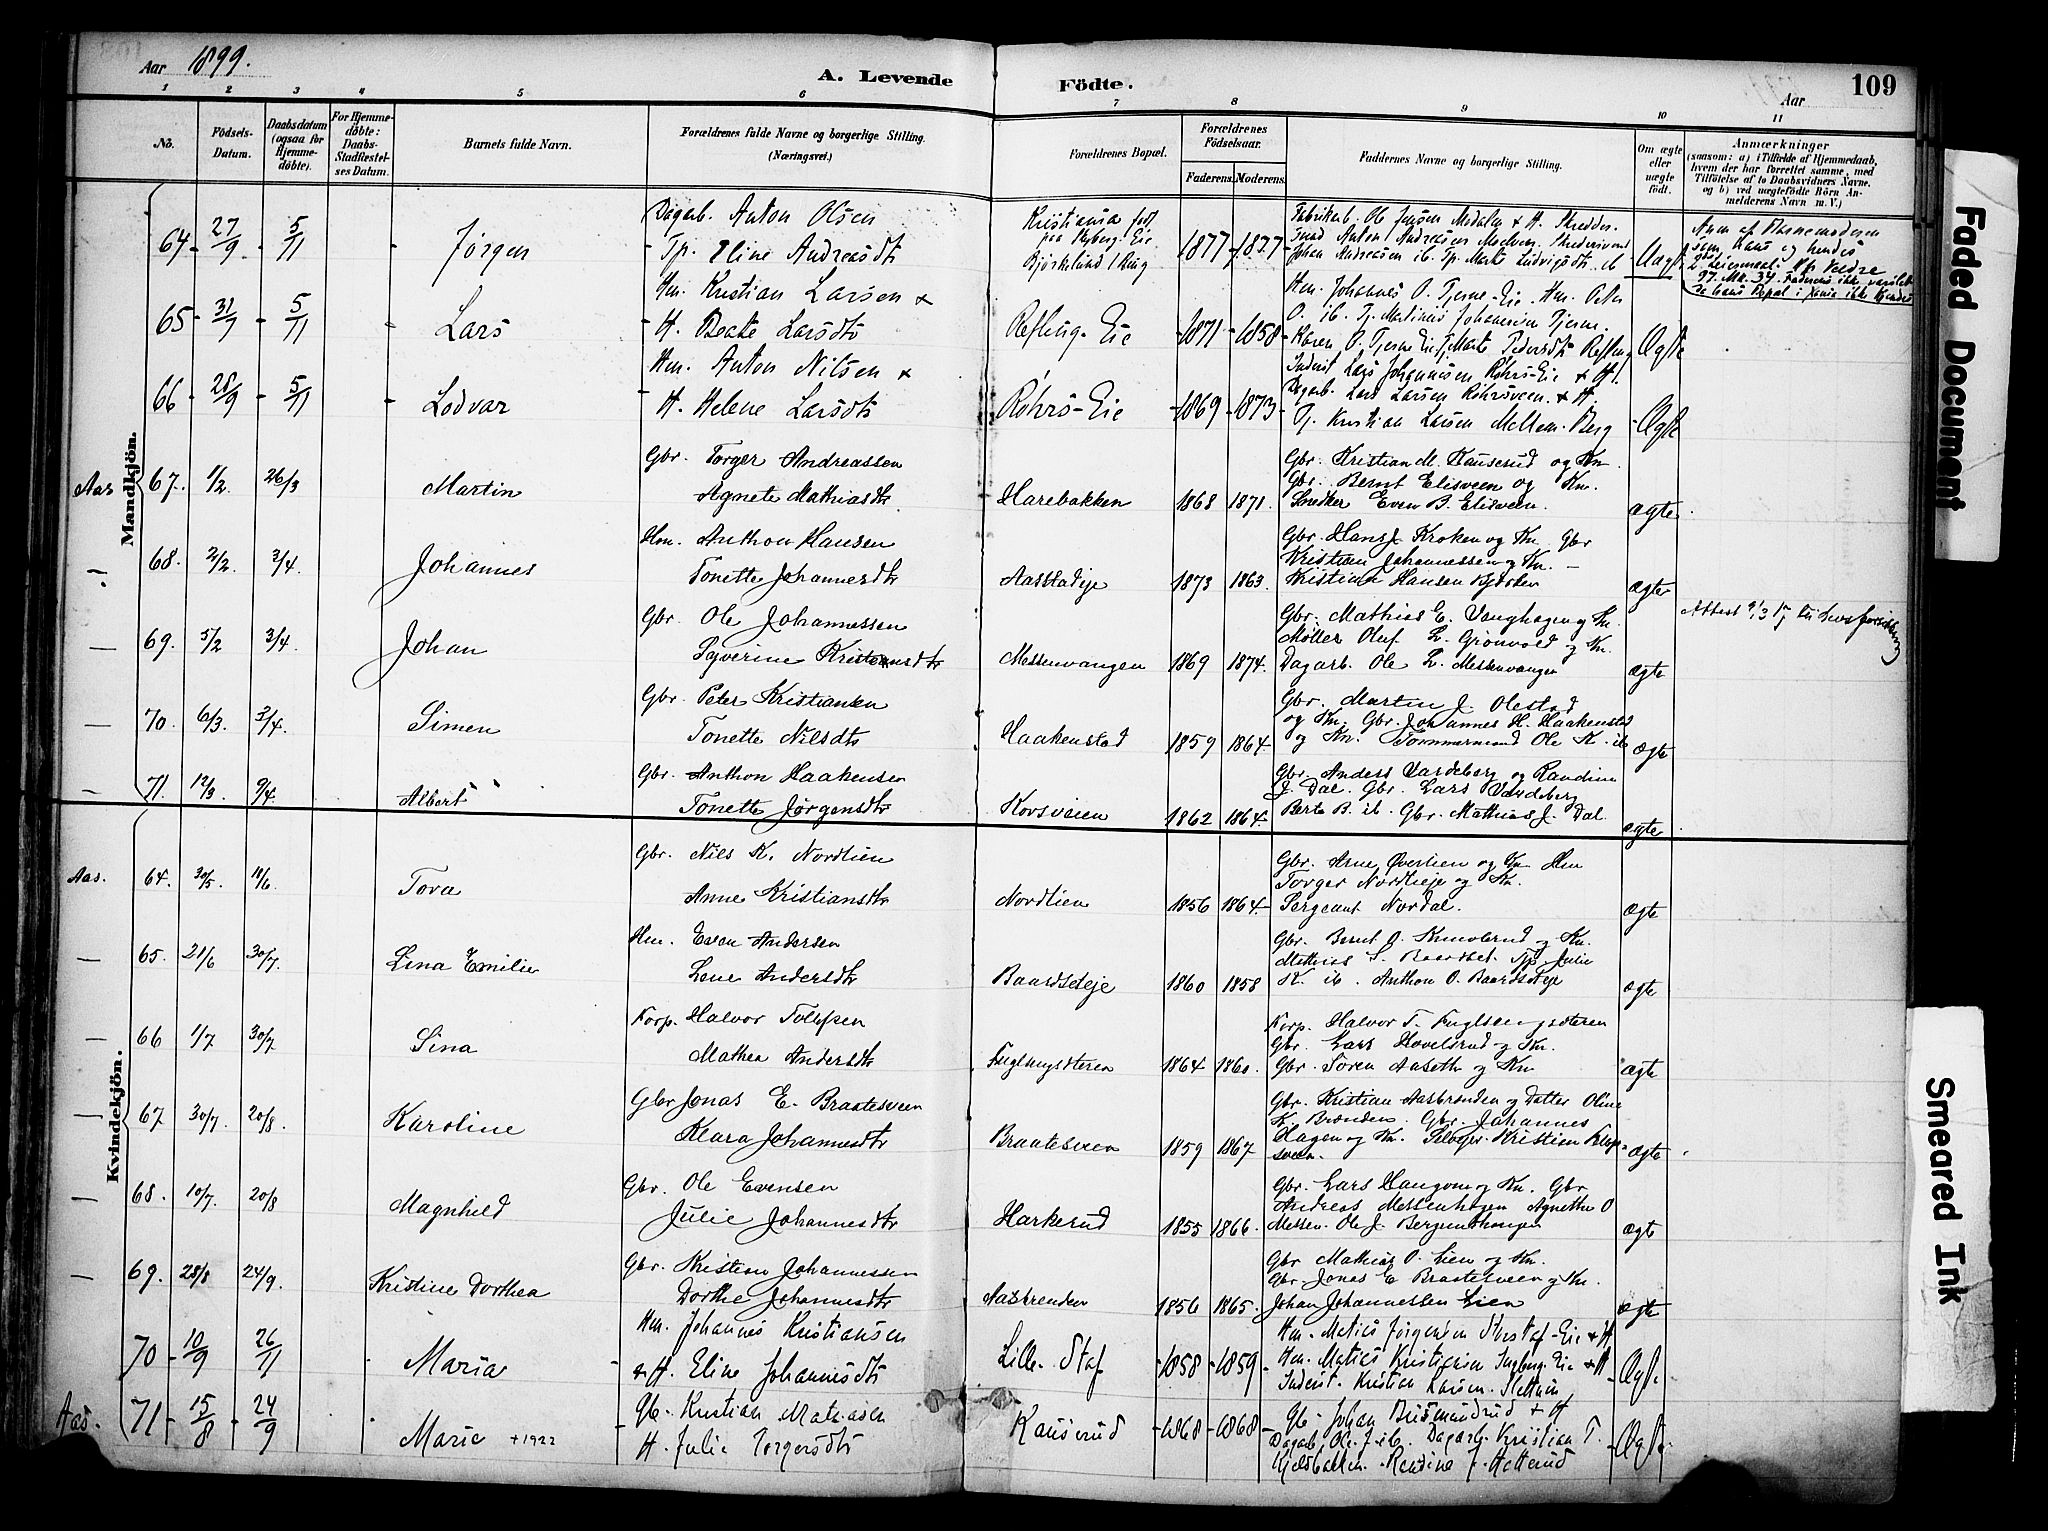 Aar 1899.
A. Levende Födte.
Aar
109
1 2 3 4 5 6 7 8 9 10 11
No.
Födsels-Datum.
Daabsdatum (ogsaa for Hjemmedöbte).
For Hjemmedöbte: Daabs-Stadfæstelses Datum.
Barnets fulde Navn.
Forældrenes fulde Navne og borgerlige Stilling. (Næringsvei.)
Forældrenes Bopæl.
Forældrenes Födselsaar.
Faderens. Moderens.
Faddernes Navne og borgerlige Stilling.
Om ægte eller uægte födt.
Anmærkninger
(saasom: a) i Tilfælde af Hjemmedaab, hvem der har forrettet samme, med Tilföielse af to Daabsvidners Navne. og b) ved uægtefödte Börn Anmelderens Navn m. V.)
Mandkjön.
64 27/9 5/11 Jørgen
Dagarb. Anton Olsen
Tp. Eline Andreasdtr
Kristiania født
paa Ryberg-Eie
Bjørkelund / Berg
1877 1877
Uægte
65 31/7 5/11 Lars
Hm. Kristian Larsen &
H. Beate Larsdtr
Refling-Eie 1871 1858
Hm. Johannes O. Tjerne-Eie. Hm. Peter
O. ib. Tj. Martinus Johansen Tjerne.
Karen O. Tjerne Eie, Tj Marte Pedersdtr Refling
Ægte
66 28/9 5/11 Lodvar
Hm. Anton Nilsen &
H. Helene Larsdtr
Röhrs-Eie 1869 1873
Inderst Lars Johannesen Röhrs-Eie & H.
Dagarb. Lars Larsen Röhrsveen & H.
Tj. Kristian Larsen Mellem-Berg
Ægte
Aas 67. 1/2. 26/3 Martin
Gbr. Torger Andreassen
Agnete Mathiasdtr.
Harebakken 1868 1871.
Gbr. Kristian M. Kauserud og Kn.
Gbr. Bernt Elisveen og Kn.
Snedker Even B. Elisveen.
ægte
— 68. 2/2. 3/4. Johannes
Hm. Anthon Hansen
Tonette Johannesdtr
Aasstadeje 1873 1863.
Gbr. Hans J. Kroken og Kn. Gbr
Kristian Johannessen og Kn. —
Kristian Hansen
ægte
— 69. 5/2 3/4. Johan
Gbr. Ole Johannessen
Syverine Kristiansdtr
Messenvangen 1869 1874.
Gbr. Mathias E. Vanghagen og Kn.
Møller Oluf L. Grönvold og Kn.
Dagarb. Ole L. Messenvangen
ægte
— 70. 6/3 3/4. Simen
Gbr. Peter Kristiansen
Tonette Nilsdtr
Haakenstad 1859 1864.
Gbr. Martin J. Olestad
og Kn. Gbr. Johannes H. Haakenstad
og Kn. Tömmermand Ole K. ib
ægte
— 71. 12/3. 9/4. Albert
Gbr. Anthon Haakensen
Tonette Jørgensdtr
Korsveien 1862 1864.
Gbr. Anders Vardeberg og Randine
J. Dal. Gbr. Lars Vardeberg
Berte B. ib. Gbr. Mathias J. Dal.
ægte
Kvindekjön.
Aas. 64. 30/5. 11/6. Tora
Gbr. Nils K. Nordlien
Anne Kristiansdtr
Nordlien 1856 1864.
Gbr. Arne Øverlien og Kn Hm
Torger Nordlieje og Kn.
Sergeant Nordal.
ægte
— 65. 21/6 30/7. Lina Emilie
Hm. Even Andersen
Lene Andersdtr
Baardseteje 1860 1858
Mathias S. Baardset. Julie
K. ib. Anthon O. Baardseteje
ægte
— 66 1/7 30/7 Sina
Korp. Halvor Tollefsen
Mathea Andersdtr
Fuglengsæteren 1864 1860.
Korp. Halvor T. Fuglsengsæteren
Gbr. Lars Hovelsrud og Kn.
Gbr. Søren Aaseth og Kn
ægte
— 67 30/7. 20/8. Karoline
Gbr Jonas E. Braatesveen
Klara Johannesdtr
Braatesveen 1859 1867.
Gbr. Kristian Aasbrænden og Datter Oline
K. Brænden. Gbr. Johannes
Hagen og Kn. Kristian
ægte
— 68. 10/7. 20/8 Magnhild
Gbr. Ole Evensen
Julie Johannesdtr
Harkerud 1855 1866.
Gbr. Lars Haugom og Kn. Gbr
Andreas Messenhagen Agnethe O
Messen. Ole J. Bergumshagen
ægte
— 69. 28/8 24/9. Kristine Dorthea
Gbr. Kristian Johannessen
Dorthe Johannesdtr
Aasbrenden 1856 1865.
Gbr Mathias O. Lien og Kn.
Gbr. Jonas E. Braatesveen og Kn.
Johan Johannessen Lien
ægte
70 10/9 26/11 Maria
Hm. Johannes Kristiansen
& H. Eline Johannesdtr
Lille-Staf 1858 1859
Hm. Matias Jørgensen Storstaf-Eie & H.
Hm. Matias Kristiansen Ingberg-Eie & H
Inderst. Kristian Larsen
Ægte.
Aas. 71 15/8 24/9 Marie +1922
Gb. Kristian Matiasen
H. Julie Torgersdtr
Kauserud 1868 1868
Gb. Johan & H
Dagarb. Ole J. ib. Dagarb. Kristian T.
Kjelsbakken.
Ægte
Faded Document
Smeared Ink